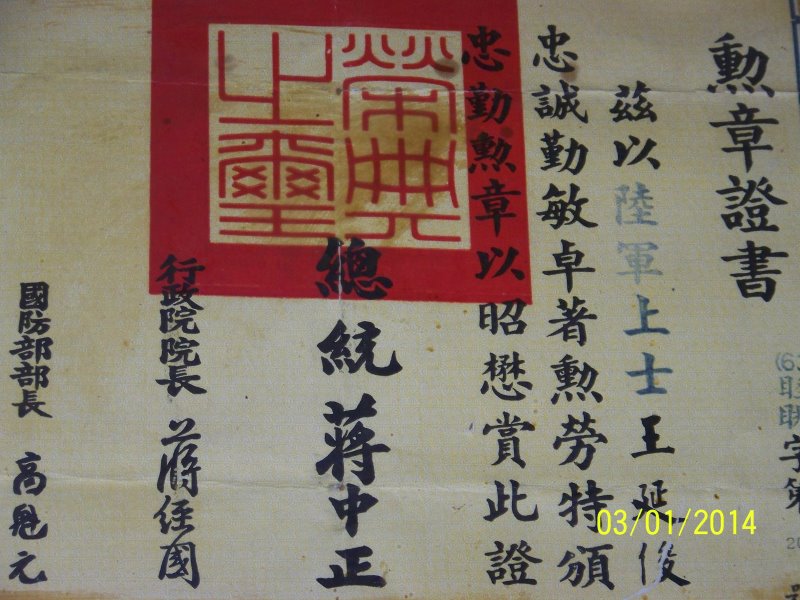 勳章證書
茲以陸軍上士王延俊
忠誠勤敏卓著勳勞特頒
忠勤勳章以昭懋賞此證
榮典之璽
總統 蔣中正
行政院院長 蔣經國
國防部部長 高魁元
字第
03/01/2014